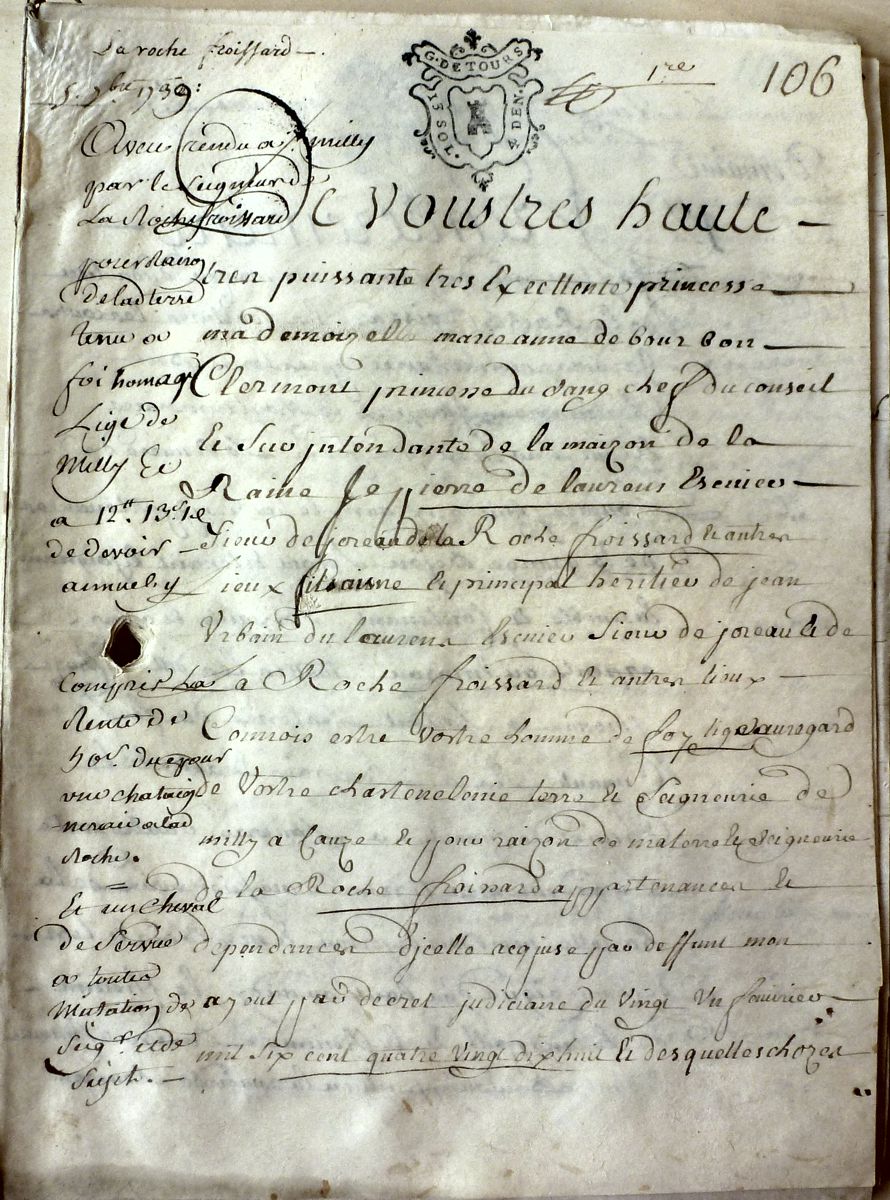 La roche froissard
5. 9bre 1739:
G. DE TOURS
13 SOL. 4 DEN.
1re
106
Aveu rendu a Sr. milly
par le Seigneur de
La Roche froissard
pour Raison
de lad terre
tenu a
foi homage
Lige de
Milly Et
a 12tt. 13s. 1d
de devoir
annuel y
Compris La
Rente de
50s. due pour
une chataig
neraie a lad
Roche.
Et un Cheval
de Service
a toute
Mutation de
Seigr. et de
Sujet.
De Vous tres haute
tres puissante tres Excellente princesse
mademoizelle marie anne de bourbon
Clermont princesse du sang chef du conseil
Et Sur jntendante de la maizon de la
Raine Je pierre de laurens Escuier
Sieur de joreau de la Roche froissard & autres
Lieux fils aisne & principal heritier de jean
Urbain du laurens Escuier Sieur de joreau & de
la Roche froissard & autres lieux
Connois estre vostre homme de foy lige au regard
de Vostre chastenelenie terre & Seigneurie de
milly a Cauze & pour raizon de ma terre & Seigneurie
de la Roche froissard appartenances &
dependances d'jcelle acquise par deffunt mon
ayeul par decret judiciaire du vingt un feuvrier
mil six cent quatre vingt dix huit & desquelles chozes